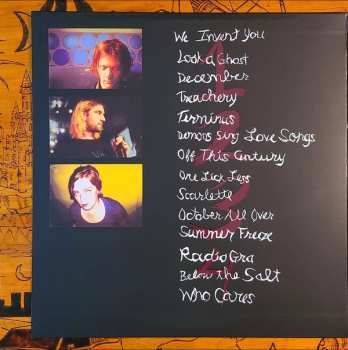 We Invent You
Look a Ghost
December
Treachery
Terminus
Demons Sing Love Songs
Off This Century
One Lick Less
Scarlette
October All Over
Summer Freeze
Radio Gra
Below The Salt
Who Cares